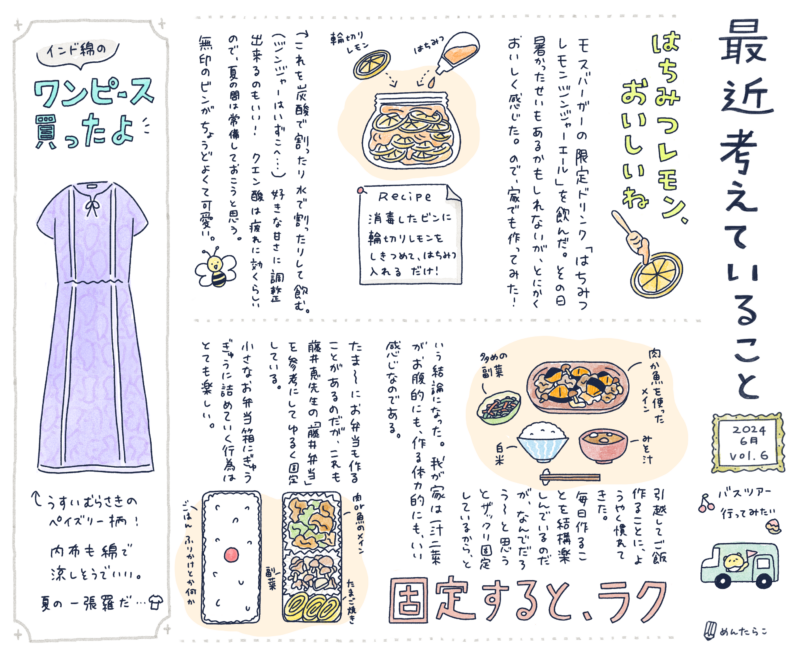 最近考えていること
2024
6月
vol.6
バスツアー
行ってみたい
めんたらこ
はちみつレモン、
おいしいね
モスバーガーの限定ドリンク「はちみつ
レモンジンジャーエール」を飲んだ。その日
暑かったせいもあるかもしれないが、とにかく
おいしく感じた。ので、家でも作ってみた!
輪切り
レモン
はちみつ
Recipe
消毒したビンに
輪切りレモンを
しきつめて、はちみつ
入れる だけ!
↑これを炭酸で割ったり水で割ったりして飲む。
(ジンジャーはいずこへ…) 好きな甘さに調整
出来るのもいい! クエン酸は疲れに効くらしい
ので、夏の間は常備しておこうと思う。
無印のビンがちょうどよくて可愛い。
固定すると、ラク
引越してご飯
作ることに、よ
うやく慣れて
きた。
毎日作るこ
とを結構楽
しんでいるのだ
が、なんでだろ
う〜と思う
とザックリ固定
しているから、と
いう結論になった。我が家は一汁二菜
がお腹的にも、作る体力的にも、いい
感じなのである。
肉か魚を使った
メイン
多めの
副菜
白米
みそ汁
たま〜にお弁当も作る
ことがあるのだが、これも
藤井恵先生の「藤井弁当」
を参考にしてゆるく固定
している。
小さなお弁当箱にぎゅう
ぎゅうに詰めていく行為は
とても楽しい。
肉or魚のメイン
副菜
たまご焼き
ごはん ふりかけとか何か
インド綿の
ワンピース
買ったよ
↑うすいむらさきの
ペイズリー柄!
内布も綿で
涼しそうでいい。
夏の一張羅だ…